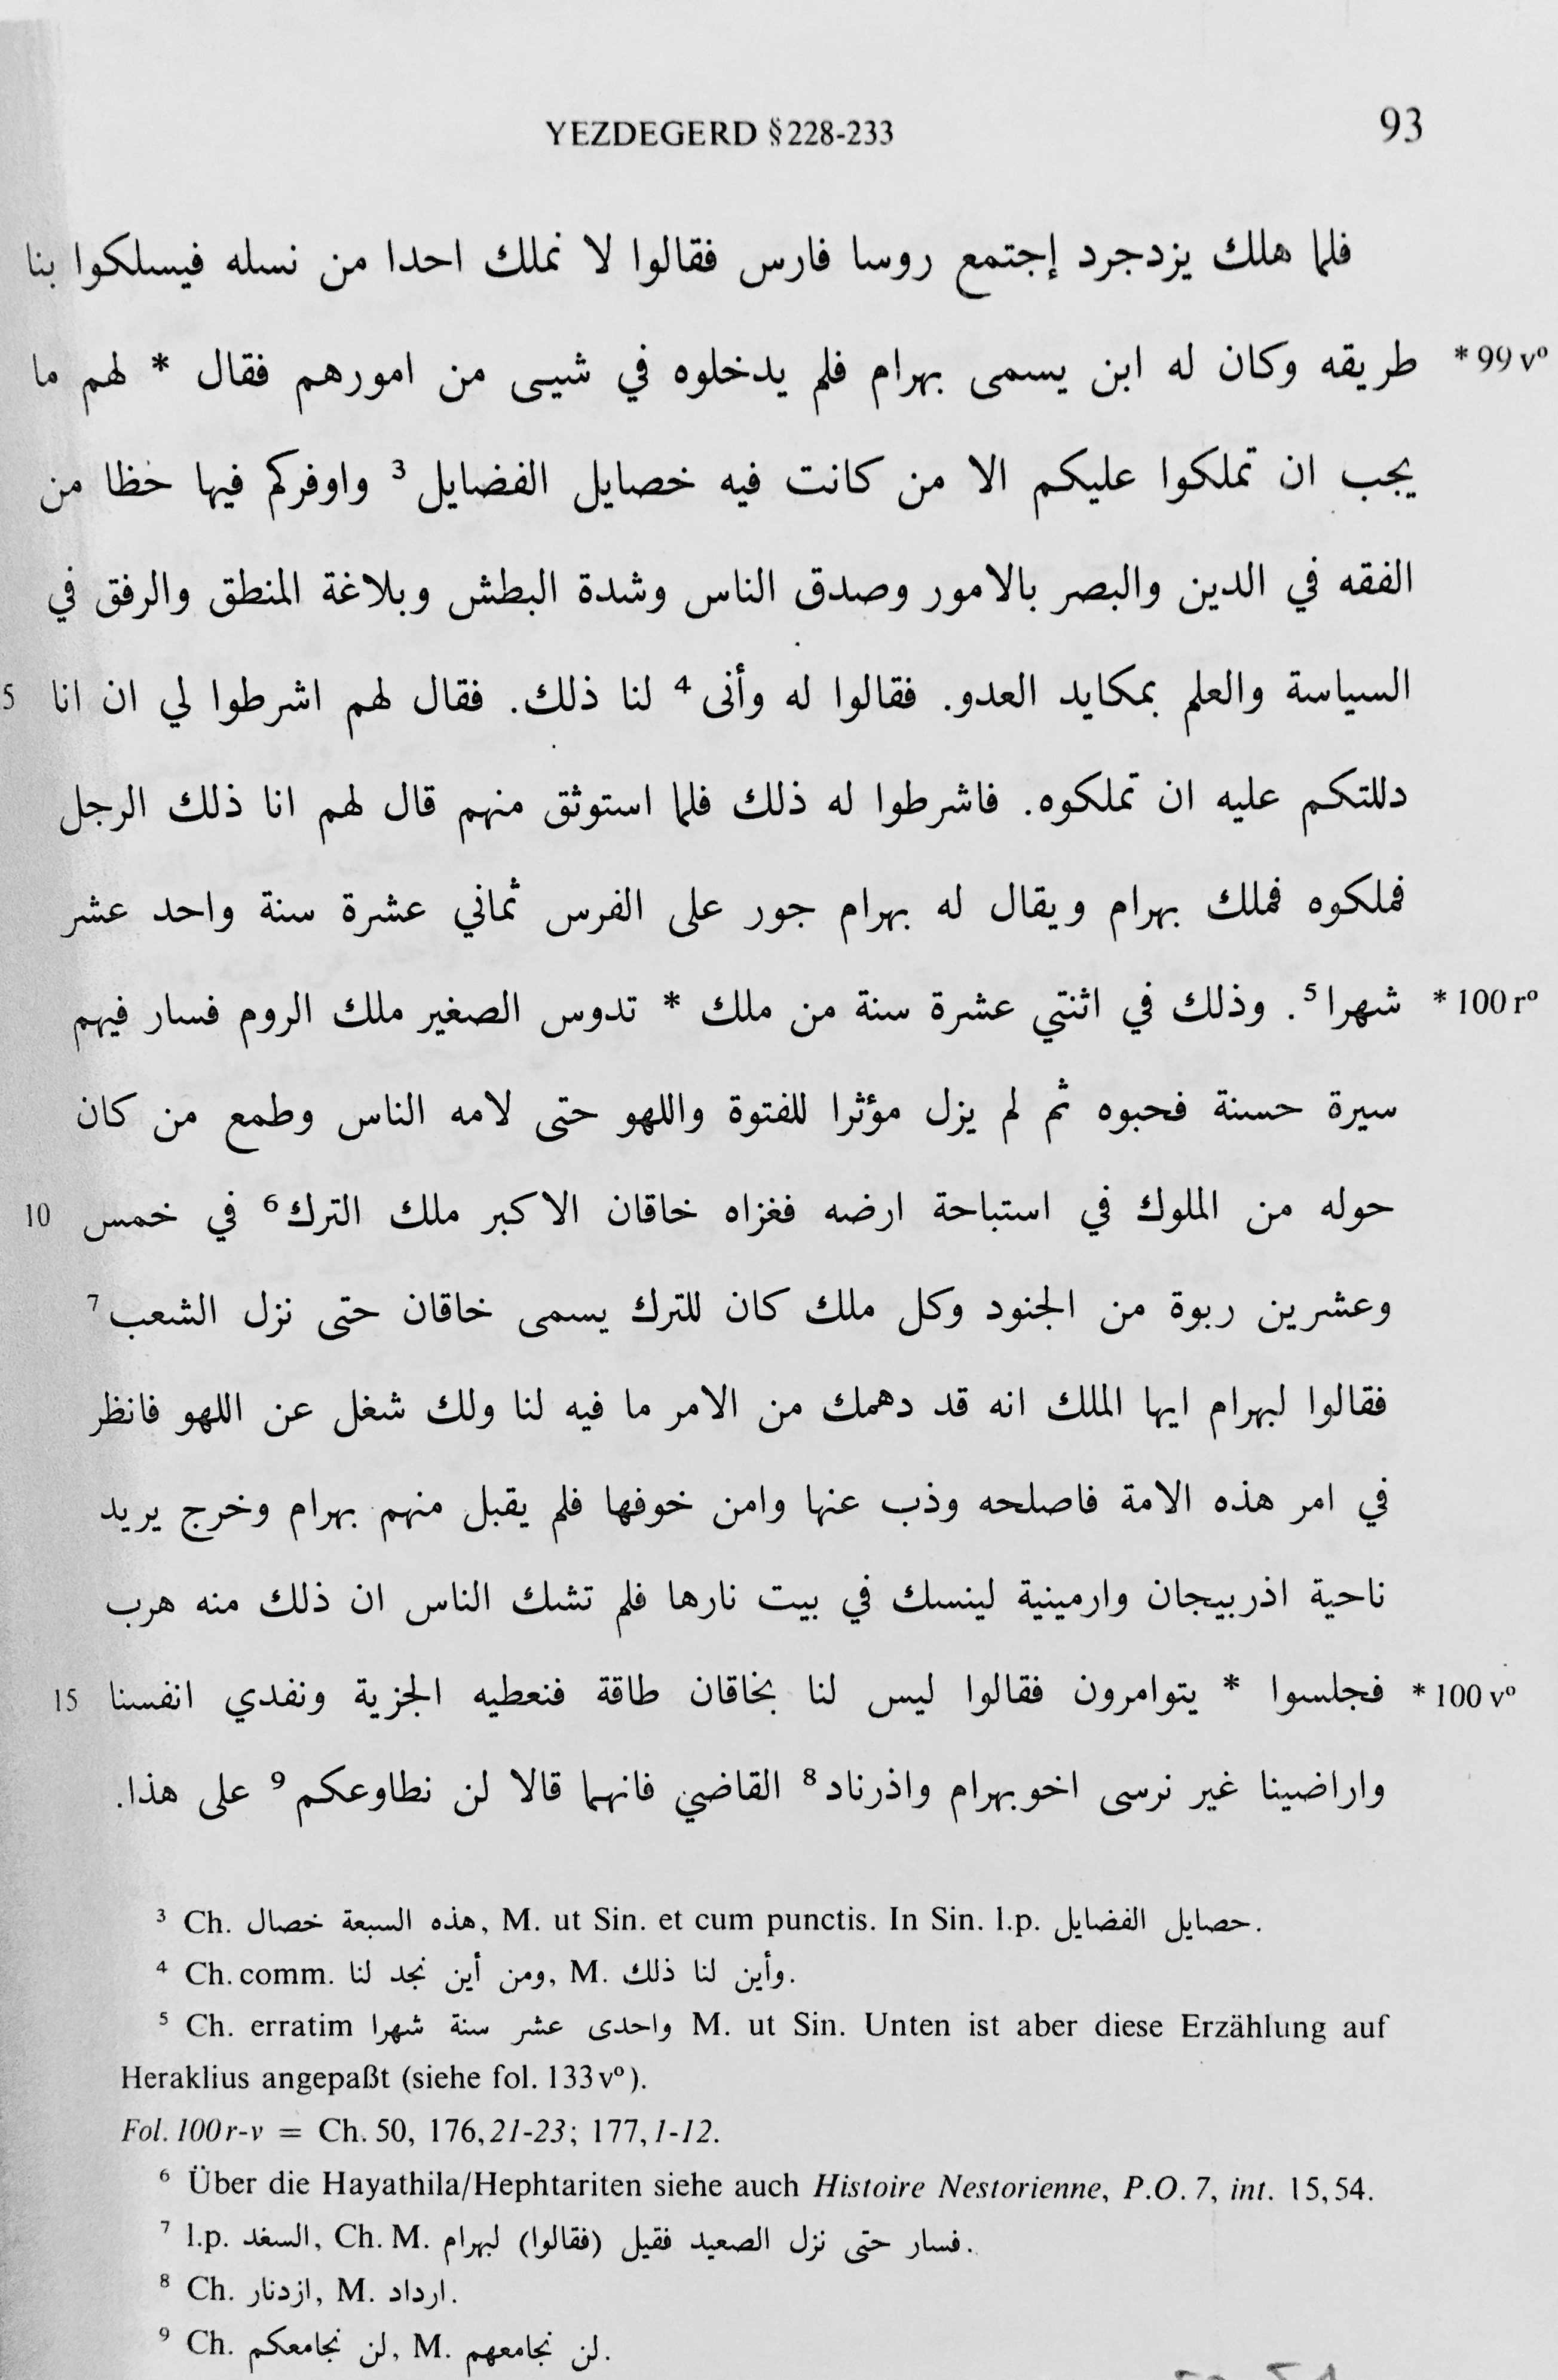 YEZDEGERD §228-233 93
فلما هلك يزدجرد إجتمع روسا فارس فقالوا لا نملك احدا من نسله فيسلكوا بنا
طريقه وكان له ابن يسمى بهرام فلم يدخلوه في شيى من امورهم فقال * لهم ما * 99 vº
يجب ان تملكوا عليكم الا من كانت فيه خصايل الفضايل ³ واوفركم فيها حظا من
الفقه في الدين والبصر بالامور وصدق الناس وشدة البطش وبلاغة المنطق والرفق في
السياسة والعلم بمكايد العدو. فقالوا له وأنى ⁴ لنا ذلك. فقال لهم اشرطوا لي ان انا 5
دللتكم عليه ان تملكوه. فاشرطوا له ذلك فلما استوثق منهم قال لهم انا ذلك الرجل
فملكوه فملك بهرام ويقال له بهرام جور على الفرس ثماني عشرة سنة واحد عشر
شهرا ⁵. وذلك في اثنتي عشرة سنة من ملك * تدوس الصغير ملك الروم فسار فيهم * 100 rº
سيرة حسنة فحبوه ثم لم يزل مؤثرا للفتوة واللهو حتى لامه الناس وطمع من كان
حوله من الملوك في استباحة ارضه فغزاه خاقان الاكبر ملك الترك ⁶ في خمس 10
وعشرين ربوة من الجنود وكل ملك كان للترك يسمى خاقان حتى نزل الشعب ⁷
فقالوا لبهرام ايها الملك انه قد دهمك من الامر ما فيه لنا ولك شغل عن اللهو فانظر
في امر هذه الامة فاصلحه وذب عنها وامن خوفها فلم يقبل منهم بهرام وخرج يريد
ناحية اذربيجان وارمينية لينسك في بيت نارها فلم تشك الناس ان ذلك منه هرب
فجلسوا * يتوامرون فقالوا ليس لنا بخاقان طاقة فنعطيه الجزية ونفدي انفسنا * 100 vº 15
واراضينا غير نرسى اخو بهرام واذرناد ⁸ القاضي فانهما قالا لن نطاوعكم ⁹ على هذا.
³ Ch. هذه السبعة خصال, M. ut Sin. et cum punctis. In Sin. l.p. حصايل الفضايل.
⁴ Ch. comm. ومن أين نجد لنا, M. وأين لنا ذلك.
⁵ Ch. erratim واحدى عشر سنة شهرا M. ut Sin. Unten ist aber diese Erzählung auf
Heraklius angepaßt (siehe fol. 133 vº).
Fol. 100r-v = Ch. 50, 176,21-23; 177,1-12.
⁶ Über die Hayathila/Hephtariten siehe auch Histoire Nestorienne, P.O. 7, int. 15,54.
⁷ l.p. السغد, Ch. M. فسار حتى نزل الصعيد فقيل (فقالوا) لبهرام.
⁸ Ch. ازدنار, M. ارداد.
⁹ Ch. لن نجامعكم, M. لن نجامعهم.